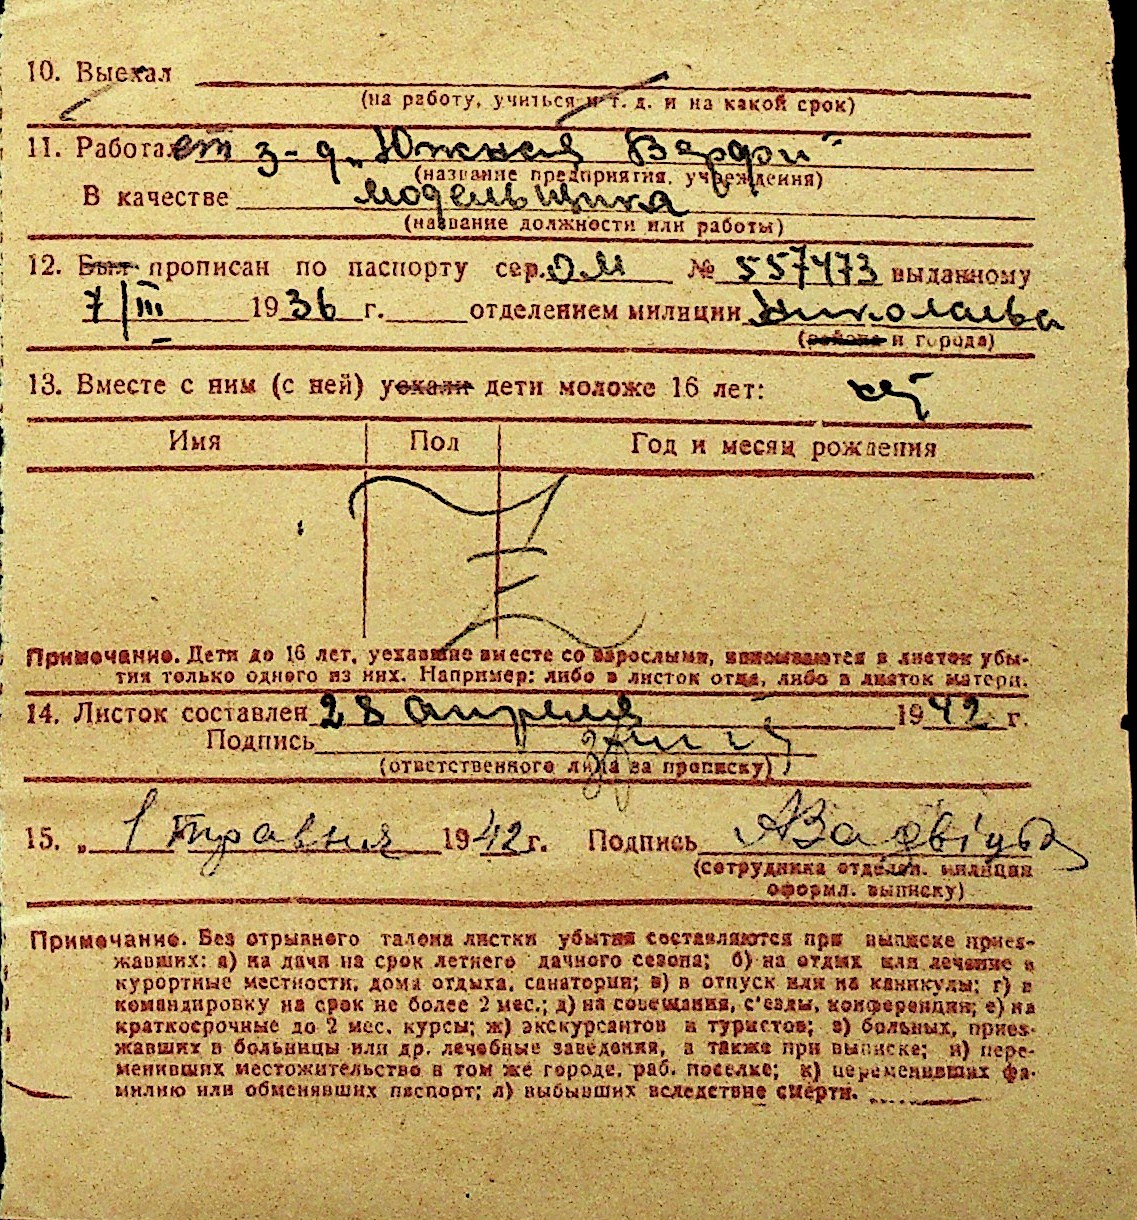 10. Выехал
(на работу, учиться и т. д. и на какой срок)
11. Работает з-д „Южная Верфи"
(название предприятия, учреждения)
В качестве модельщика
(название должности или работы)
12. Был прописан по паспорту сер. ОМ № 557473 выданному
7/III 1936 г. отделением милиции Николаева
(района и города)
13. Вместе с ним (с ней) уехали дети моложе 16 лет: нет
Имя Пол Год и месяц рождения
Примечание. Дети до 16 лет, уехавшие вместе со взрослыми, вписываются в листок убы-
тия только одного из них. Например: либо в листок отца, либо в листок матери.
14. Листок составлен 28 апреля 1942 г.
Подпись
(ответственного лица за прописку)
15. „ 1 травня 1942 г. Подпись
(сотрудника отделен. милиции
оформл. выписку)
Примечание. Без отрывного талона листки убытия составляются при выписке приез-
жавших: а) на дачи на срок летнего дачного сезона; б) на отдых или лечение в
курортные местности, дома отдыха, санатории; в) в отпуск или на каникулы; г) в
командировку на срок не более 2 мес.; д) на совещания, с'езды, конференции; е) на
краткосрочные до 2 мес. курсы; ж) экскурсантов и туристов; з) больных, приез-
жавших в больницы или др. лечебные заведения, а также при выписке; и) пере-
менивших местожительство в том же городе, раб. поселке; к) переменивших фа-
милию или обменявших паспорт; л) выбывших вследствие смерти.